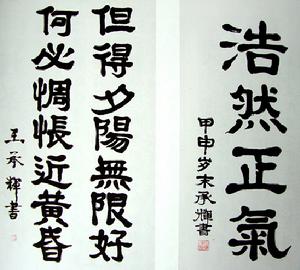 浩然正氣
甲申岁末承輝書
但得夕陽無限好
何必惆悵近黄昏
王承輝書